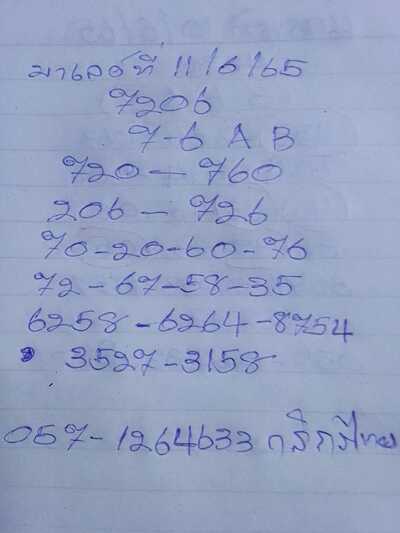 มาเลย์ที่ 11/6/65
7206
7-6 A B
720 - 760
206 - 726
70-20-60-76
72-67-58-35
6258-6264-8754
3527-3158
057-1264633 กสิกรไทย